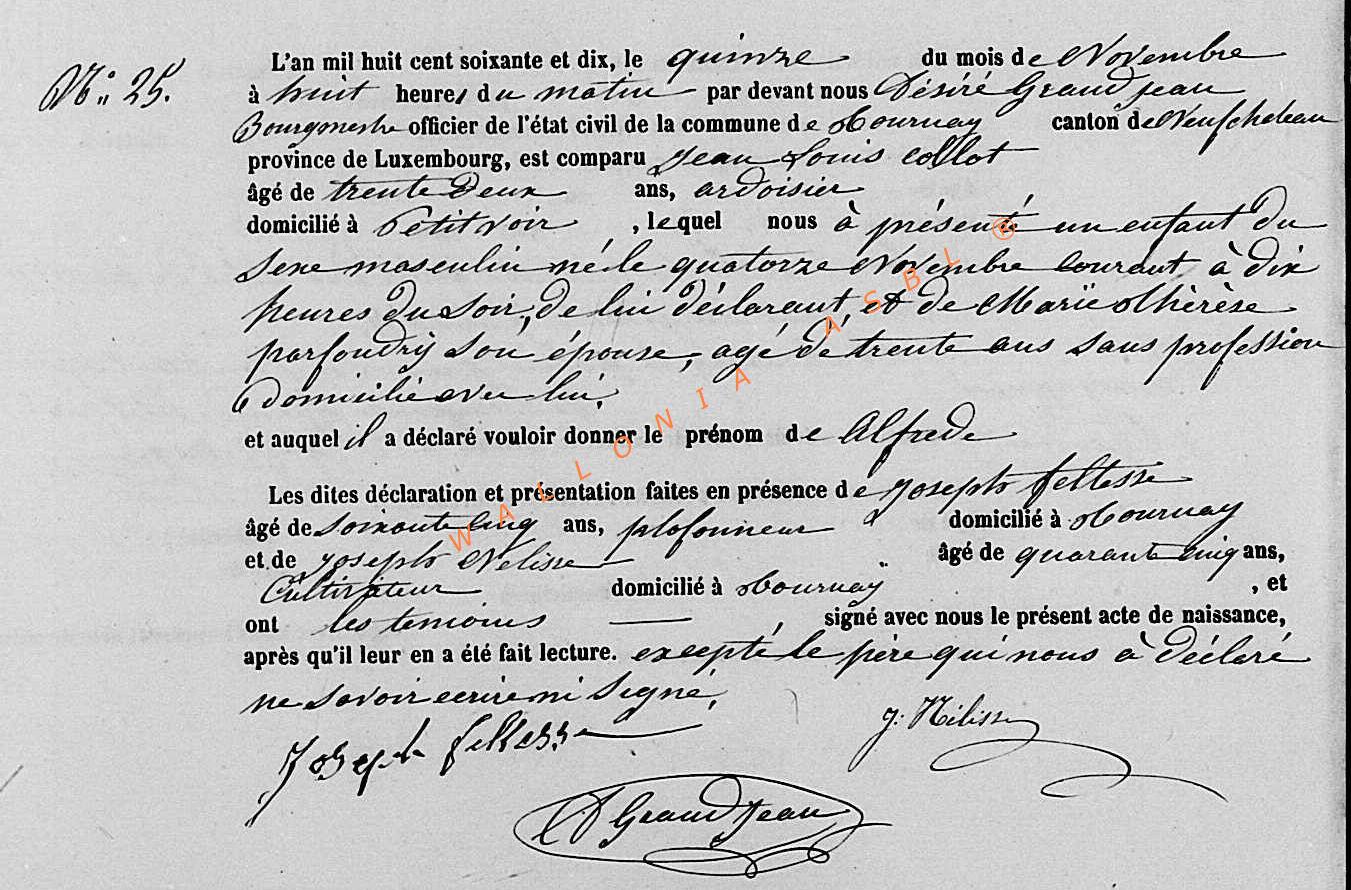 N° 25.
L'an mil huit cent soixante et dix, le quinze du mois de Novembre
à huit heures du matin par devant nous Désiré Grandjean
Bourgmestre officier de l'état civil de la commune de Tournay canton de Neufchateau
province de Luxembourg, est comparu Jean Louis Collot
âgé de trente deux ans, ardoisier
domicilié à Petitvoir , lequel nous à présenté un enfant du
sexe masculin né le quatorze Novembre courant à dix
heures du soir, de lui déclarant, et de Marie Thérèse
parfondry son épouse, agé de trente ans sans profession
domicilié avec lui,
et auquel il a déclaré vouloir donner le prénom de Alfrede
Les dites déclaration et présentation faites en présence de Joseph feltesse
âgé de soixante cinq ans, plafonneur domicilié à Tournay
et de Joseph Nélisse âgé de quarante cinq ans,
Cultivateur domicilié à Tournaÿ , et
ont les temoins , signé avec nous le présent acte de naissance,
après qu'il leur en a été fait lecture. excepté le père qui nous à déclaré
ne savoir ecrire ni signé,
Joseph feltesse J. Nélisse
D Grandjean
WALLONIA ASBL ®